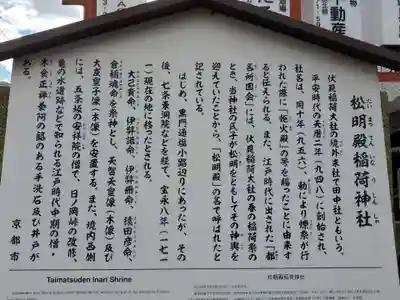 動産
松明殿稲荷神社
たいまつでんいなりじんじゃ
伏見稲荷大社の境外末社で田中社ともいう。
平安時代の天暦二年（九四八）に創祀され、
社名は、同十年（九五六）、勅により燎祭が行
われた際に「炬火殿」の号を賜ったことに由来す
ると伝えられる。また、江戸時代に出された「都
名所図会」には、伏見稲荷大社の春の稲荷祭の
とき、当神社の氏子が松明をともしてその神輿を
迎えていたことから、「松明殿」の名で呼ばれたと
記されている。
はじめ、黒門通塩小路辺りにあったが、その
後、七条東洞院などを経て、宝永八年（一七一
一）現在の地に移ったとされる。
大己貴命、伊弉諾命、伊弉册命、猿田彦命、
倉稲魂命を祭神とし、天智天皇像（木像）及び
大友皇子像（木像）を安置する。また、境内西側
には、五条坂の安祥院の僧で、日ノ岡峠の改修、
亀の水道跡などで知られる江戸時代中期の僧・
木食正禅養阿の銘のある手洗石及び井戸が
京都市
Taimatsuden Inari Shrine